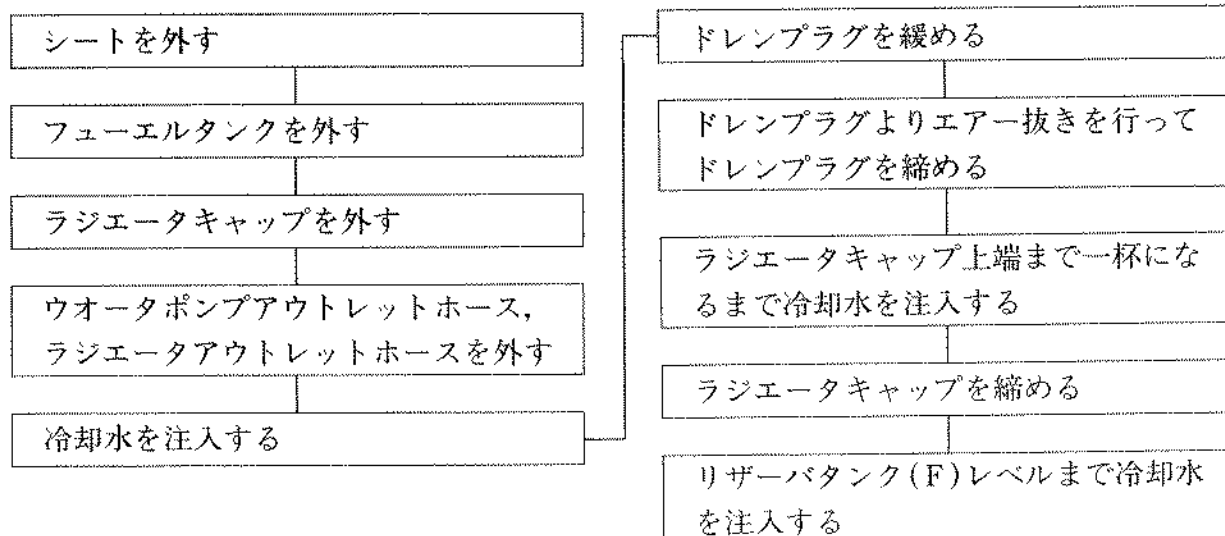 シートを外す
フューエルタンクを外す
ラジエータキャップを外す
ウオータポンプアウトレットホース,
ラジエータアウトレットホースを外す
冷却水を注入する
ドレンプラグを緩める
ドレンプラグよりエアー抜きを行って
ドレンプラグを締める
ラジエータキャップ上端まで一杯にな
るまで冷却水を注入する
ラジエータキャップを締める
リザーバタンク(F)レベルまで冷却水
を注入する